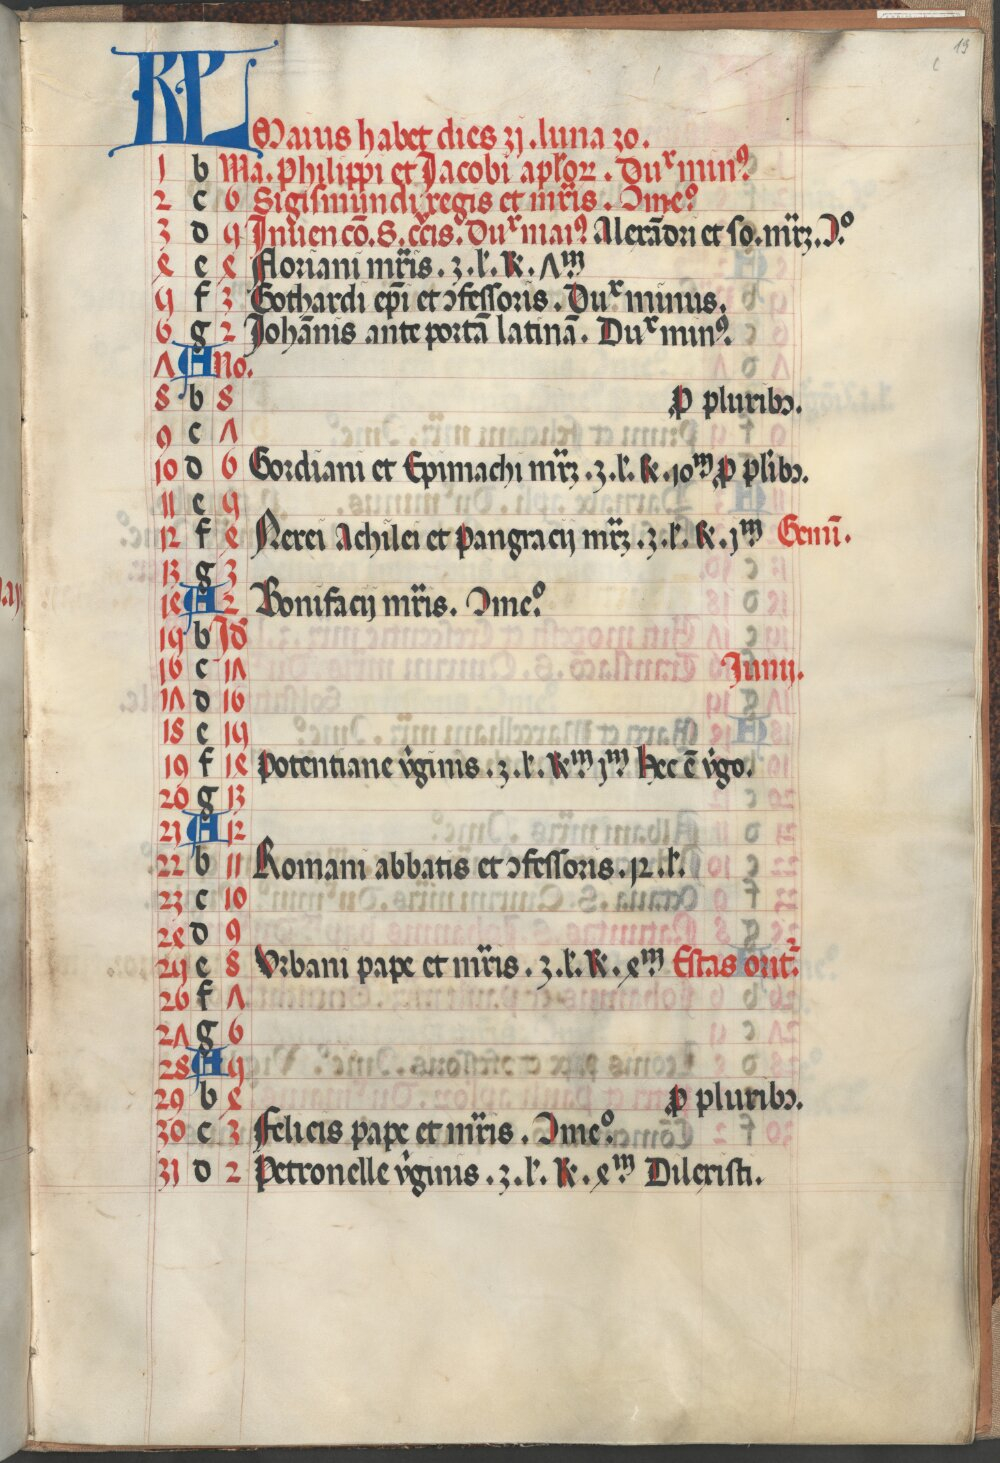 13
KL
Maius habet dies 31. luna 30.
1 b Ma. Philippi et Jacobi aplo2. Duˣ minꝰ
2 c 6 Sigismundi regis et mr̄is. Ↄmeº
3 d 5 Inuencō. S. crc̄is. Duˣ maiꝰ Alexādri et so. mr̄ꝝ. Ↄ.º
4 e 4 Floriani mr̄is. 3. l'. R. 7ᵐ
5 f 3 Gothardi ep̄i et ↄfessoris. Duˣ minus.
6 g 2 Johānis ante portā latinā. Duˣ minꝰ.
7 A No.
8 b 8 ꝓ pluribꝫ.
9 c 7
10 d 6 Gordiani et Epimachi mr̄ꝝ. 3. l'. R. 10ᵐ ꝓ pl'ibꝫ.
11 e 5
12 f 4 Nerei Achilei et Pangracij mr̄ꝝ. 3. l'. R. 1ᵐ Gemī.
13 g 3
14 A 2 Bonifacij mr̄is. Ↄmeº
15 b Id'
16 c 17 Junij.
17 d 16
18 e 15
19 f 14 Potentiane v̓ginis. 3. l'. Rᵐ 1ᵐ Hec ē v̓go.
20 g 13
21 A 12
22 b 11 Romani abbatis et ↄfessoris. 12. l'.
23 c 10
24 d 9
25 e 8 Vrbani pape et mr̄is. 3. l'. R. 4ᵐ Estas orit².
26 f 7
27 g 6
28 A 5
29 b 4 ꝓ pluribꝫ.
30 c 3 Felicis pape et mr̄is. Ↄmeº
31 d 2 Petronelle v̓ginis. 3. l'. R. 4ᵐ Dilexisti.